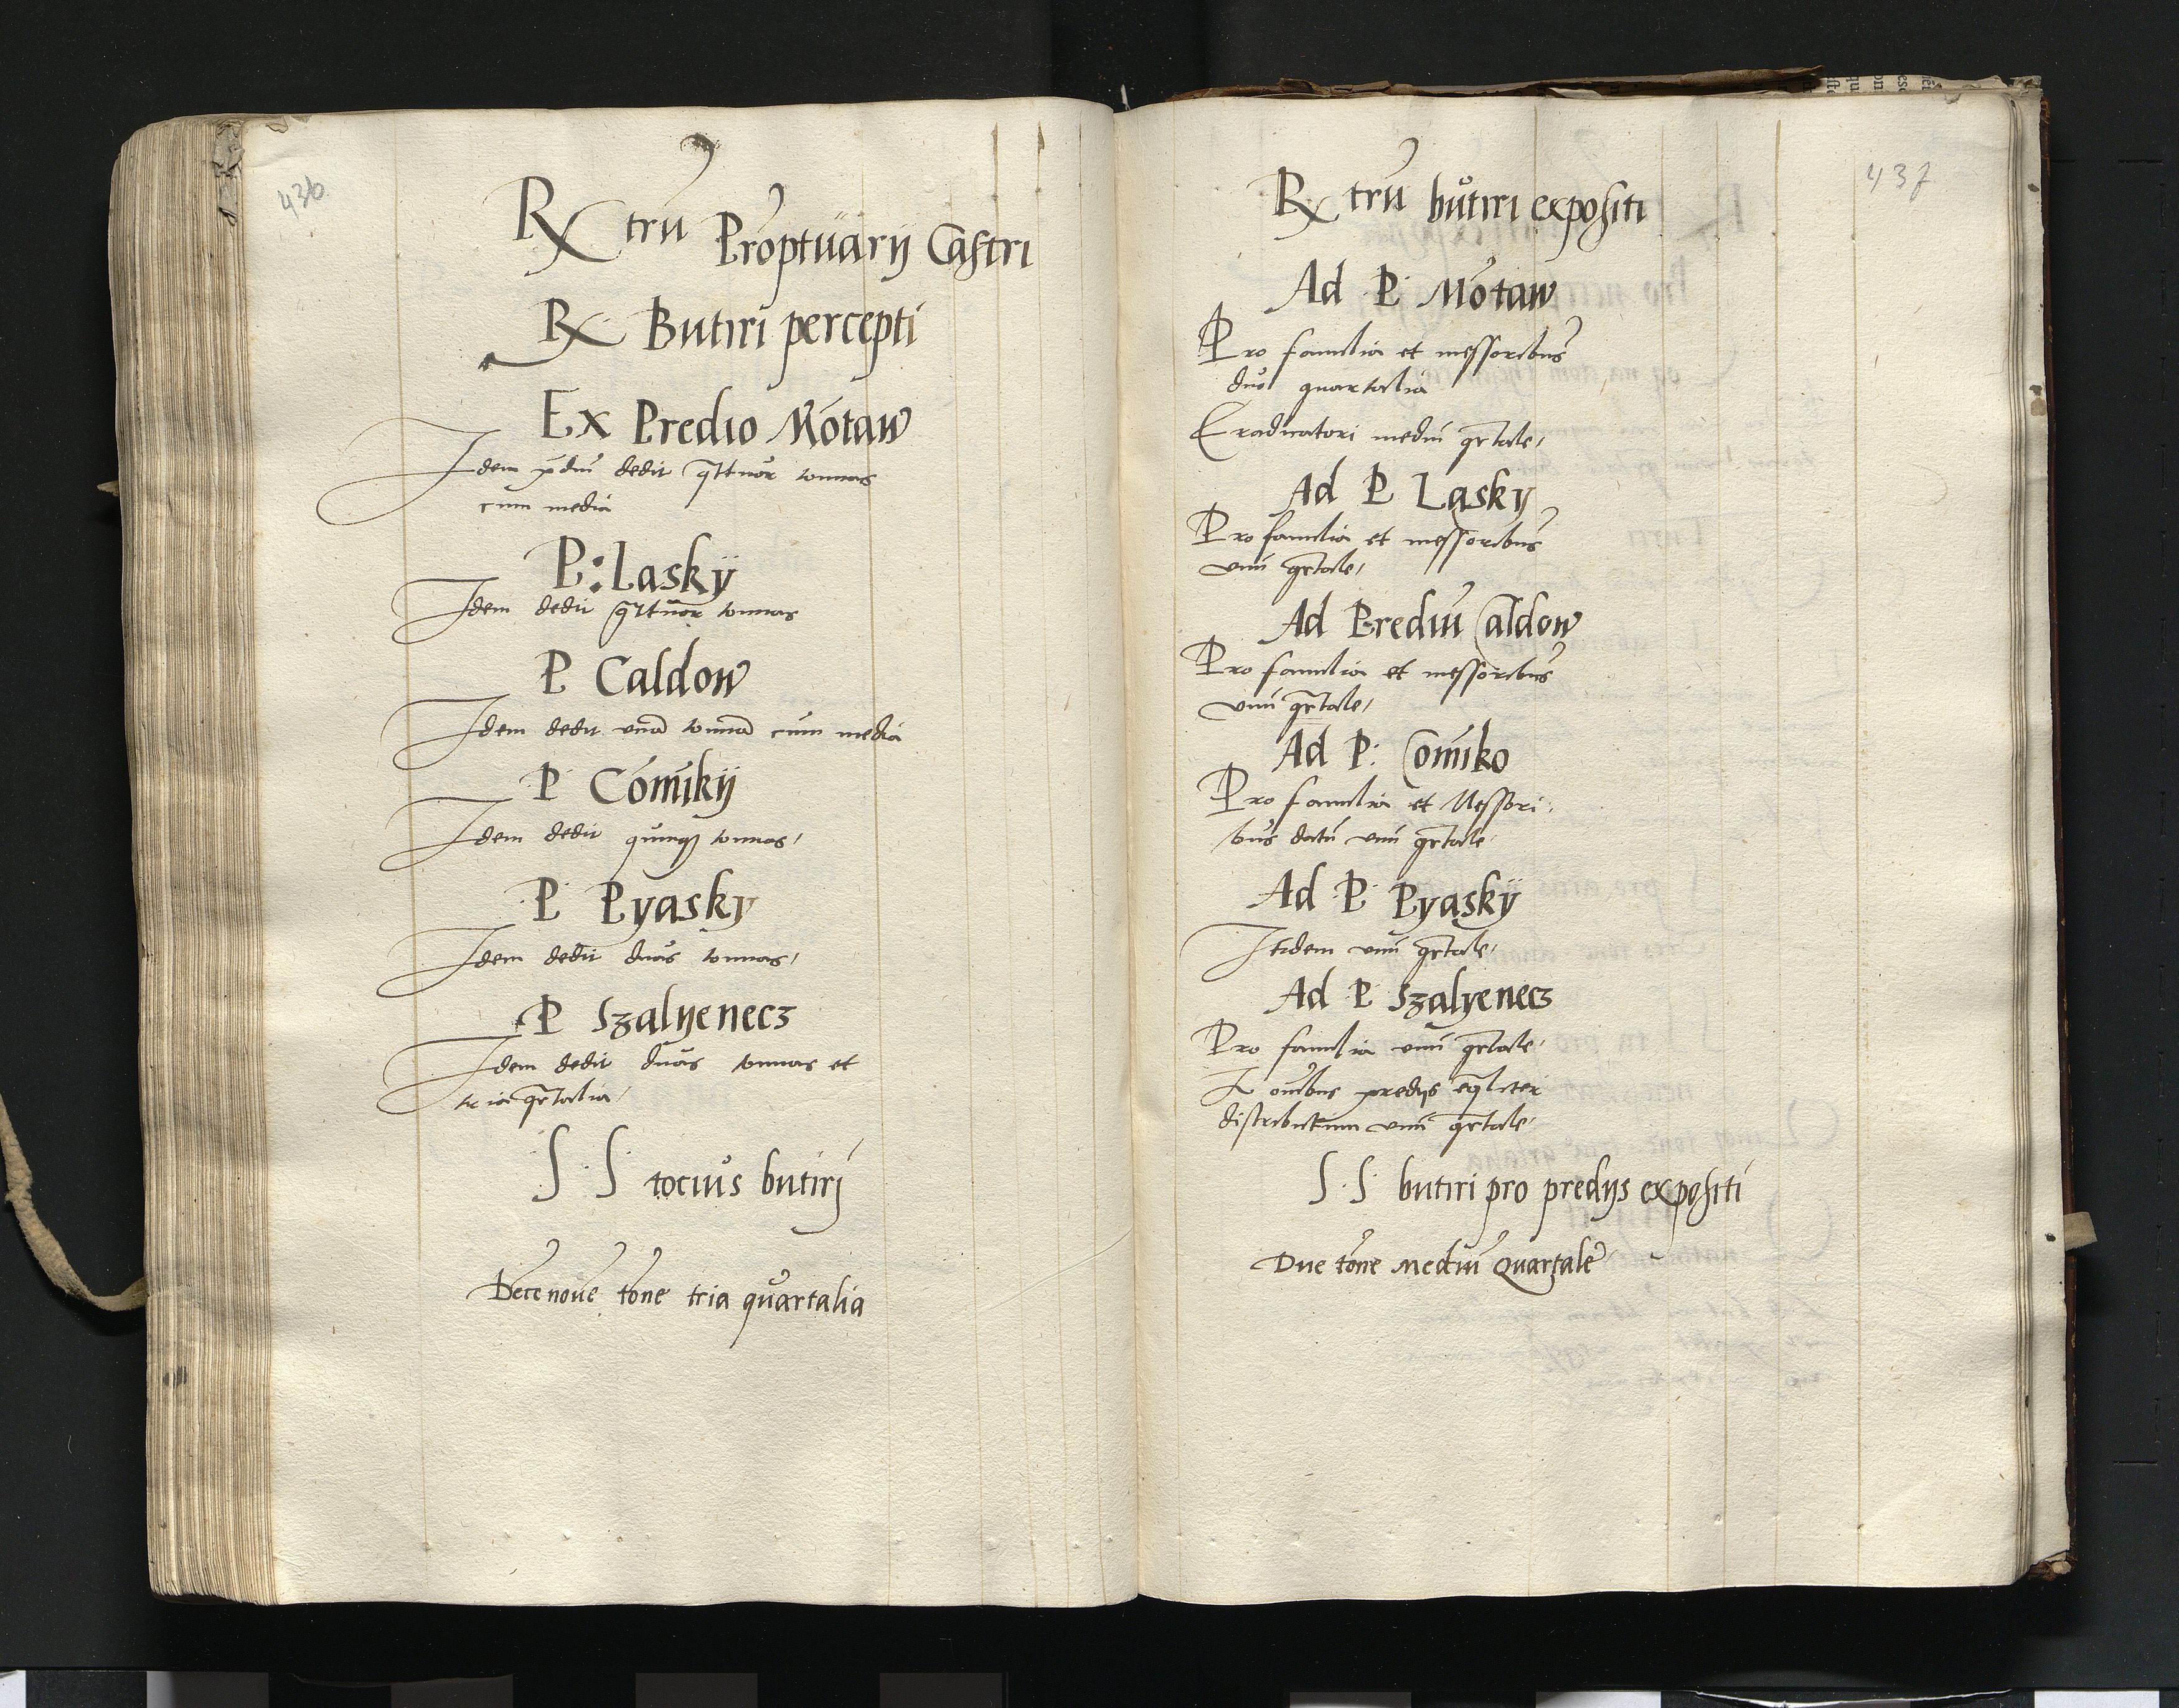 436
Rx trū Proptuarij Castri
Rx Butiri percepti
Ex Predio Motaw
Idem p̄diū dedit q̄ttuor tonnas
cum media
P: Lasky
Idem dedit q̄ttuor tonnas
P Caldow
Idem dedit unā tonnā cum media
P Comikij
Idem dedit quinq3 tonnas
P Pyasky
Idem dedit duas tonnas
P Szalyenecz
Idem dedit duas tonnas et
tria qrtalia
S S tocius butirj
Dece noue tone tria quartalia
437
Rx trū butiri expositi
Ad P Motaw
Pro familia et messoribus
duo quartalia
Eradicatori mediū qrtale
Ad P Lasky
Pro familia et messoribus
unū qrtale
Ad Prediū Caldow
Pro familia et messoribus
unū qrtale
Ad P: Comiko
Pro familia et Messori
bus datū unū qrtale
Ad P Pyasky
Itidem unū qrtale
Ad P Szalyenecz
Pro familia unū qrtale
oībus predijs eqliter
distributum unū qrtale
S S butiri pro predijs expositi
Due tone Mediū Quartale